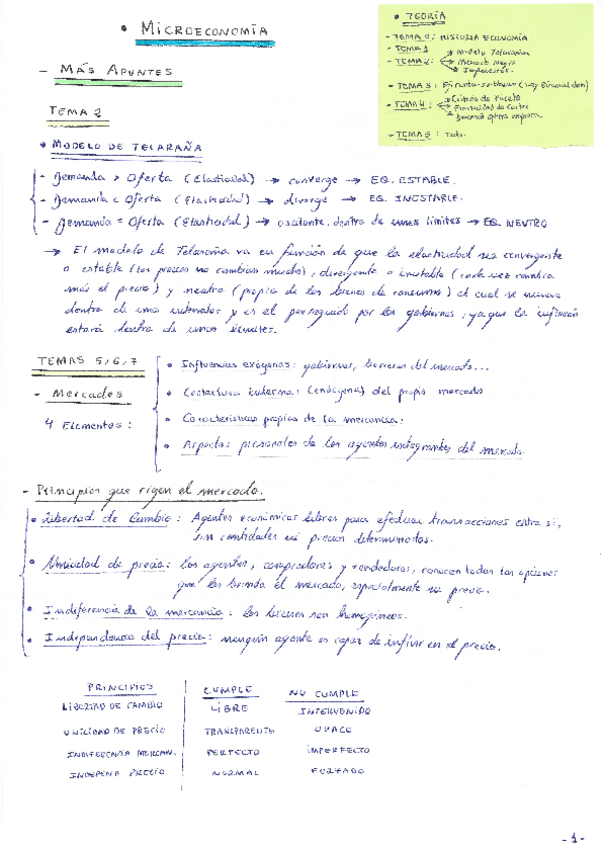 • MICROECONOMÍA
• TEORÍA
- TEMA 0: HISTORIA ECONOMÍA
- TEMA 1
- TEMA 2: → Modelo Telaraña
→ Mercado Negro
→ Impuestos.
- TEMA 3:
- TEMA 4: → Criterio de Pareto
→ Elasticidad de
→ Decisión óptima empresa.
- TEMA 5: Todo.
- MÁS APUNTES
TEMA 2
• MODELO DE TELARAÑA
- Demanda > Oferta (Elasticidad) → converge → EQ. ESTABLE.
- Demanda < Oferta (Elasticidad) → diverge → EQ. INESTABLE.
- Demanda = Oferta (Elasticidad) → oscilante, dentro de unos límites → EQ. NEUTRO
→ El modelo de Telaraña va en función de que la elasticidad sea convergente
o estable (los precios no cambian mucho), divergente o inestable (cada vez cambia
más el precio) y neutra (propia de los bienes de consumo) el cual se mueve
dentro de unos intervalos y es el perseguido por los gobiernos, ya que la inflación
estará dentro de unos límites.
TEMAS 5, 6, 7
- Mercados
4 Elementos:
• Influencias exógenas: gobiernos, barreras del mercado...
• Estructura interna: (endógena) del propio mercado
• Características propias de la mercancía:
• Aspectos personales de los agentes integrantes del mercado
- Principios que rigen el mercado.
• Libertad de Cambio: Agentes económicos libres para efectuar transacciones entre sí,
sin cantidades ni precios determinados.
• Unicidad de precio: los agentes, compradores y vendedores, conocen todas las opciones
que les brinda el mercado, especialmente su precio.
• Indiferencia de la mercancía: los bienes son homogéneos.
• Independencia del precio: ningún agente es capaz de influir en el precio.
PRINCIPIOS CUMPLE NO CUMPLE
LIBERTAD DE CAMBIO LIBRE INTERVENIDO
UNICIDAD DE PRECIO TRANSPARENTE OPACO
INDIFERENCIA MERCAN. PERFECTO IMPERFECTO
INDEPEN. PRECIO NORMAL FORZADO
- 1 -